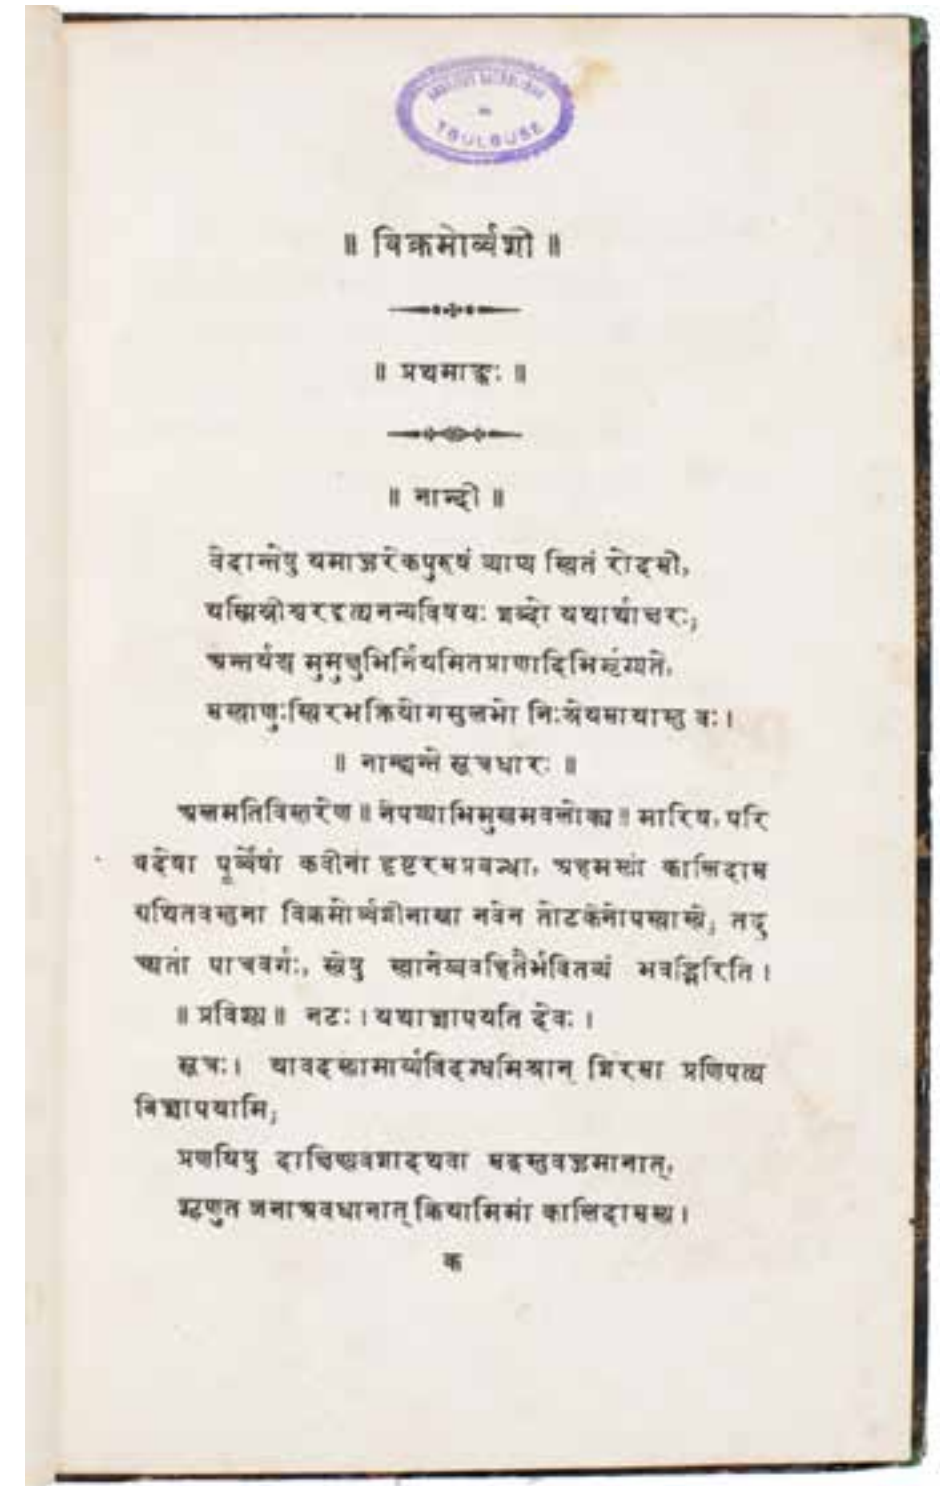 TOULOUSE
॥ विक्रमोर्व्वशी ॥
॥ प्रथमाङ्कः ॥
॥ नान्दी ॥
वेदान्तेषु यमाज्जरेकपुरुषं व्याप्य स्थितं रोदसी,
यस्मिन्नीश्वरइत्यनन्यविषयः शब्दो यथार्थाक्षरः;
अन्तर्यश्च मुमुक्षुभिर्नियमितप्राणादिभिर्मृग्यते,
सस्थाणुःस्थिरभक्तियोगसुलभो निःश्रेयसायास्तु वः।
॥ नान्द्यन्ते सूत्रधारः ॥
अलमतिविस्तरेण ॥ नेपथ्याभिमुखमवलोक्य ॥ मारिष, परि
षदेषा पूर्व्वेषां कवीनां दृष्टरसप्रबन्धा, अहमस्यां कालिदास
ग्रथितवस्तुना विक्रमोर्व्वशीनाम्ना नवेन तोटकेनोपस्थास्ये; तदु
च्यतां पात्रवर्गः, स्वेषु स्थानेष्ववहितैर्भवितव्यं भवद्भिरिति।
॥ प्रविश्य ॥ नटः। यथाज्ञापयति देवः।
सूत्रः। यावदस्यामार्य्यविदग्धमिश्रान् शिरसा प्रणिपत्य
विज्ञापयामि;
प्रणयिषु दाक्षिण्यवशादथवा सद्वस्तुवज्जमानात्,
शृणुत जनाअवधानात् क्रियामिमां कालिदासस्य।
क